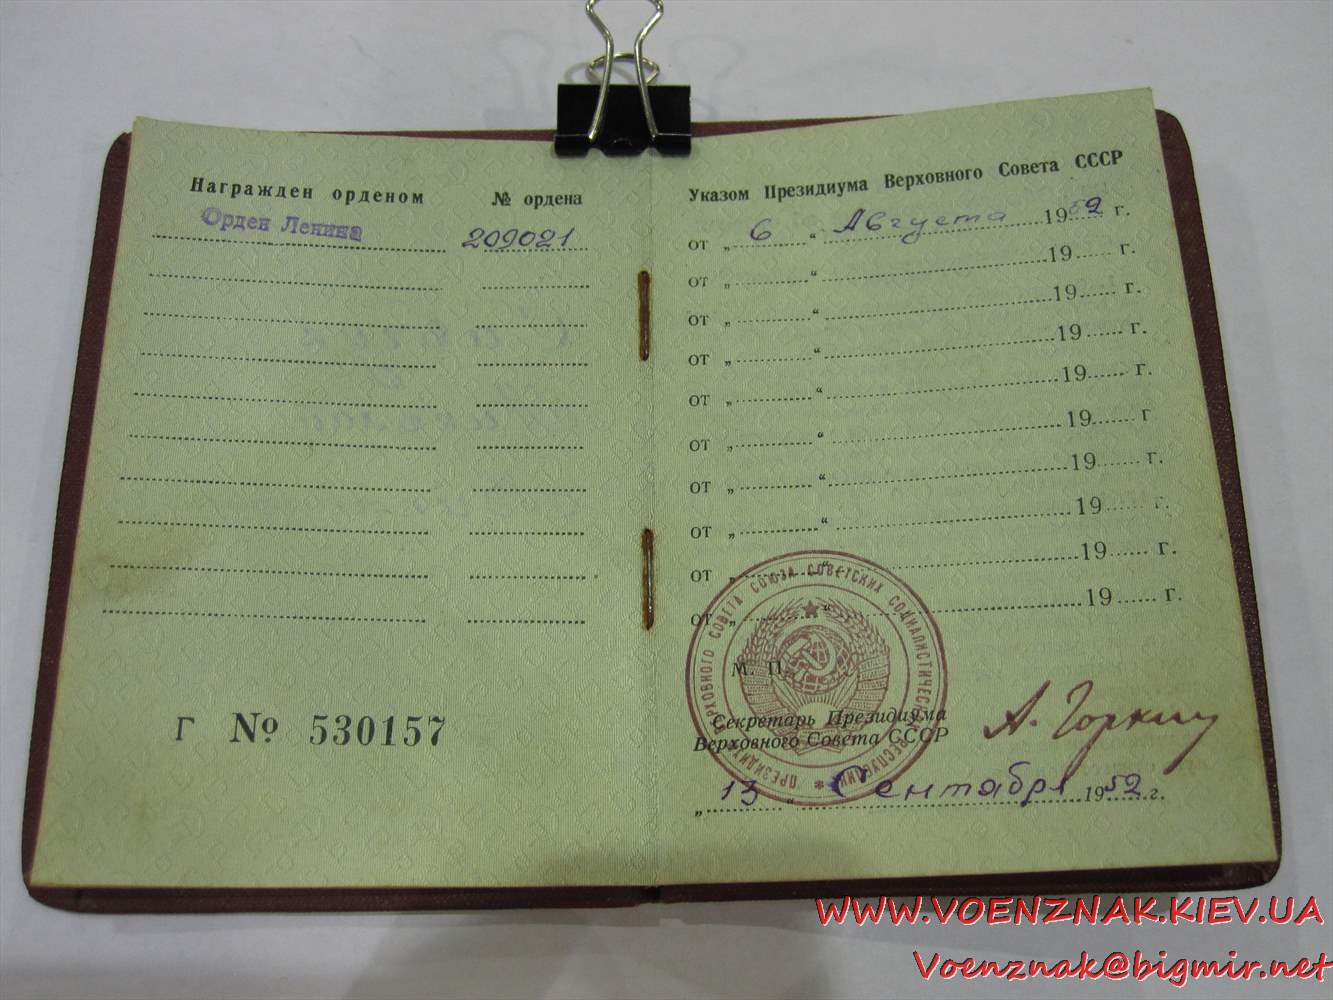 Награжден орденом № ордена
Орден Ленина 209021
Г № 530157
Указом Президиума Верховного Совета СССР
от „ 6 “ Августа 1952 г.
от „ “ 19 г.
от „ “ 19 г.
от „ “ 19 г.
от „ “ 19 г.
от „ “ 19 г
от „ “ 19 г.
от „ “ 19 г.
от „ “ 19 г.
от „ “ 19 г.
ПРЕЗИДИУМ ВЕРХОВНОГО СОВЕТА СОЮЗА СОВЕТСКИХ СОЦИАЛИСТИЧЕСКИХ РЕСПУБЛИК
М. П.
Секретарь Президиума
Верховного Совета СССР
А. Горкин
„ 13 “ Сентября 1952 г.
WWW.VOENZNAK.KIEV.UA
Voenznak@bigmir.net